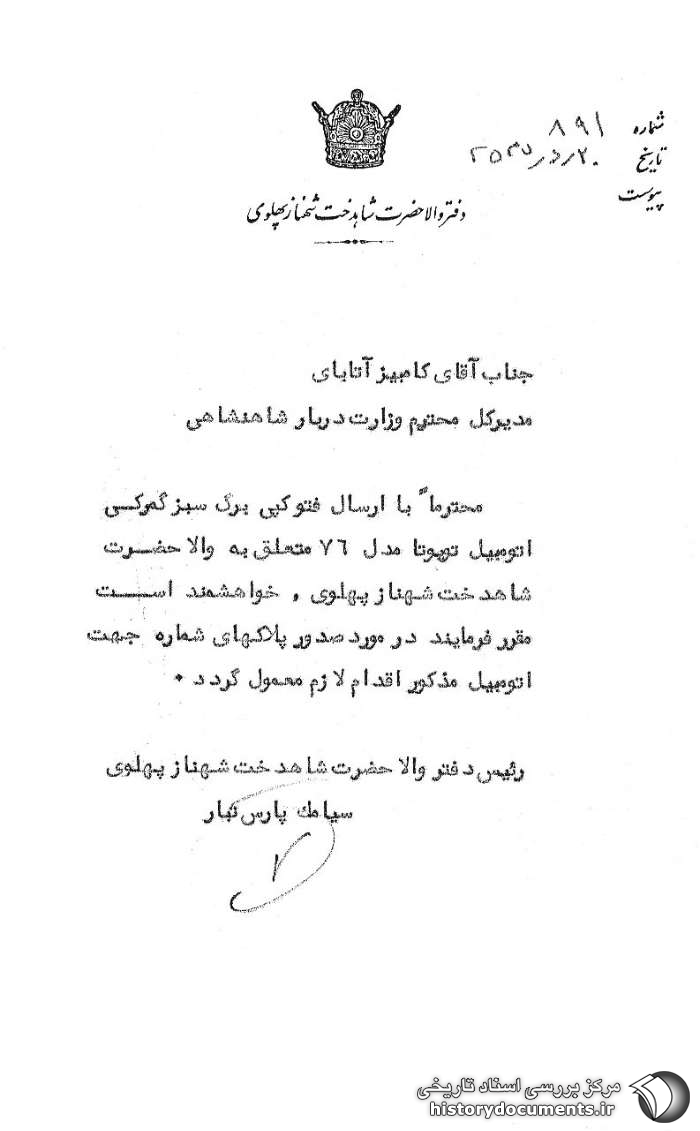 شماره ۸۹۱
تاریخ
پیوست
دفتر والاحضرت شاهدخت شهناز پهلوی
جناب آقای کامبیز آتابای
مدیرکل محترم وزارت دربار شاهنشاهی
محترماً با ارسال فتوکپی برگ سبز گمرکی
اتومبیل تویوتا مدل ۷۶ متعلق به والاحضرت
شاهدخت شهناز پهلوی , خواهشمند است
مقرر فرمایند در مورد صدور پلاکهای شماره جهت
اتومبیل مذکور اقدام لازم معمول گردد •
رئیس دفتر والاحضرت شاهدخت شهناز پهلوی
سیامك پارس تبار
مرکز بررسی اسناد تاریخی
historydocuments.ir